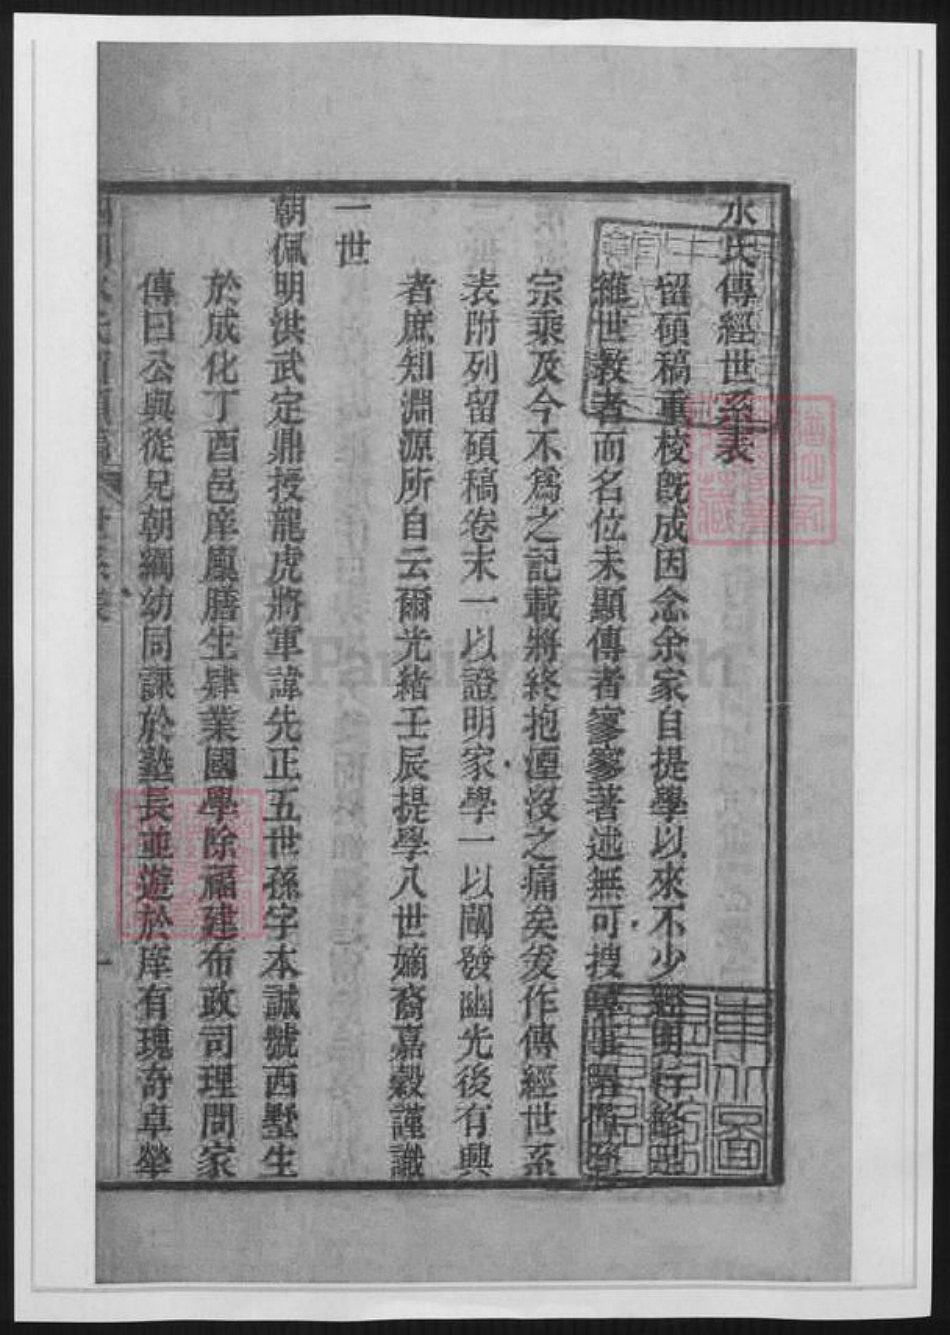 水氏傳經世系表
留碩稿重梭旣成因念余家自提學以來不少經明行修足
維世教者而名位未顯傳者寥寥著述無可搜
宗乘及今不爲之記載將終抱湮沒之痛矣爰作傳經世系
表附列留碩稿卷末一以證明家學一以闡發幽光後有興
者庶知淵源所自云爾光緒壬辰提學八世嫡裔嘉穀謹識
一世
朝佩明洪武定鼎授龍虎將軍諱先正五世孫字本誠號西墅生
於成化丁酉邑庠廩膳生肄業國學除福建布政司理問家
傳曰公與從兄朝綱幼同課於塾長並遊於庠有瑰奇卓犖
水氏留碩稿 世系表 一
FamilySearch